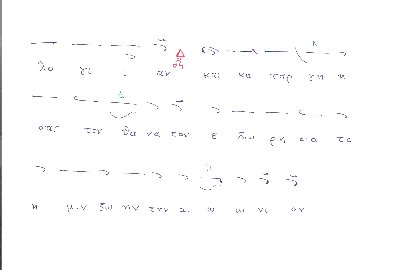 λο γι αν και κα ταρ γη η
σας τον θα να τον ε δω ρη σα το
η μ.ν ζω ην την α. ω ω νι ον